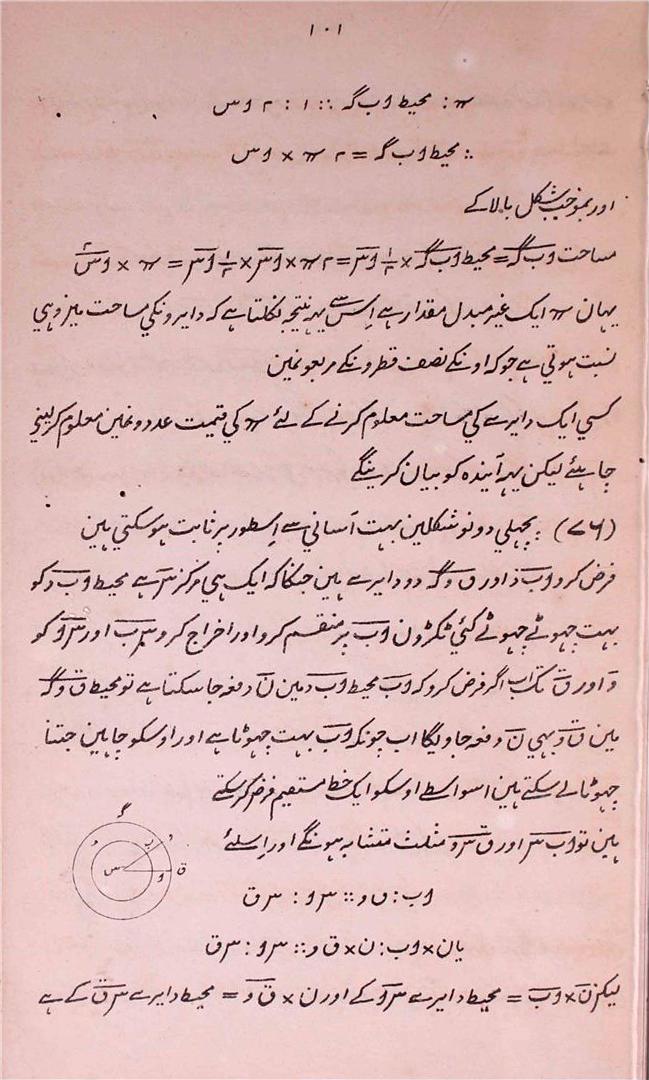 ۱۰۱
π : محیط وب گہ :: ۱ : ۲ وس
∴ محیط وب گہ = ۲ π × وس
اور بموجب شکل بالا کے
مساحت وب گہ = محیط وب گہ × ۱/۲ وس = ۲ π × وس × ۱/۲ وس = π × وس۲
یہان π ایک غیر مبدل مقدار ہے اِس سے یہہ نتیجہ نکلتا ہے کہ دایرونکي مساحت مین وہي
نسبت ہوتي ہے جو کہ اونکے نصف قطرونکے مربعونمین
کسي ایک دایرے کي مساحت معلوم کرنے کے لئے π کي قیمت عددونمین معلوم کرلیني
چاہئے لیکن یہہ آیندہ کو بیان کرینگے
(۷۶) پچہلي دونو شکلین بہت آساني سے اِسطور پر ثابت ہوسکتي ہین
فرض کرو وب د اور ق وگہ دو دایرے ہین جنکا کہ ایک ہي مرکز س ہے محیط وب د کو
بہت چہوٹے چہوٹے کئي ٹکڑون وب پر منقسم کرو اور اخراج کرو س ب اور س و کو
و اور ق تک اب اگر فرض کرو کہ وب محیط وب د مین ن دفعہ جاسکتا ہے تو محیط ق وگہ
مین ق و بہي ن دفعہ جاویگا اب چونکہ وب بہت چہوٹا ہے اور اوسکو چاہین جتنا
چہوٹا لے سکتے ہین اسواسطے اوسکو ایک خط مستقیم فرض کرسکتے
ہین تو اب س اور ق س و مثلث متشابہ ہونگے اور اِسلئے
وب : ق و :: س و : س ق
یا ن × وب : ن × ق و :: س و : س ق
لیکن ن × وب = محیط دایرے س و کے اور ن × ق و = محیط دایرے س ق کے ہے
گ
د
ب
و
س
و
ق